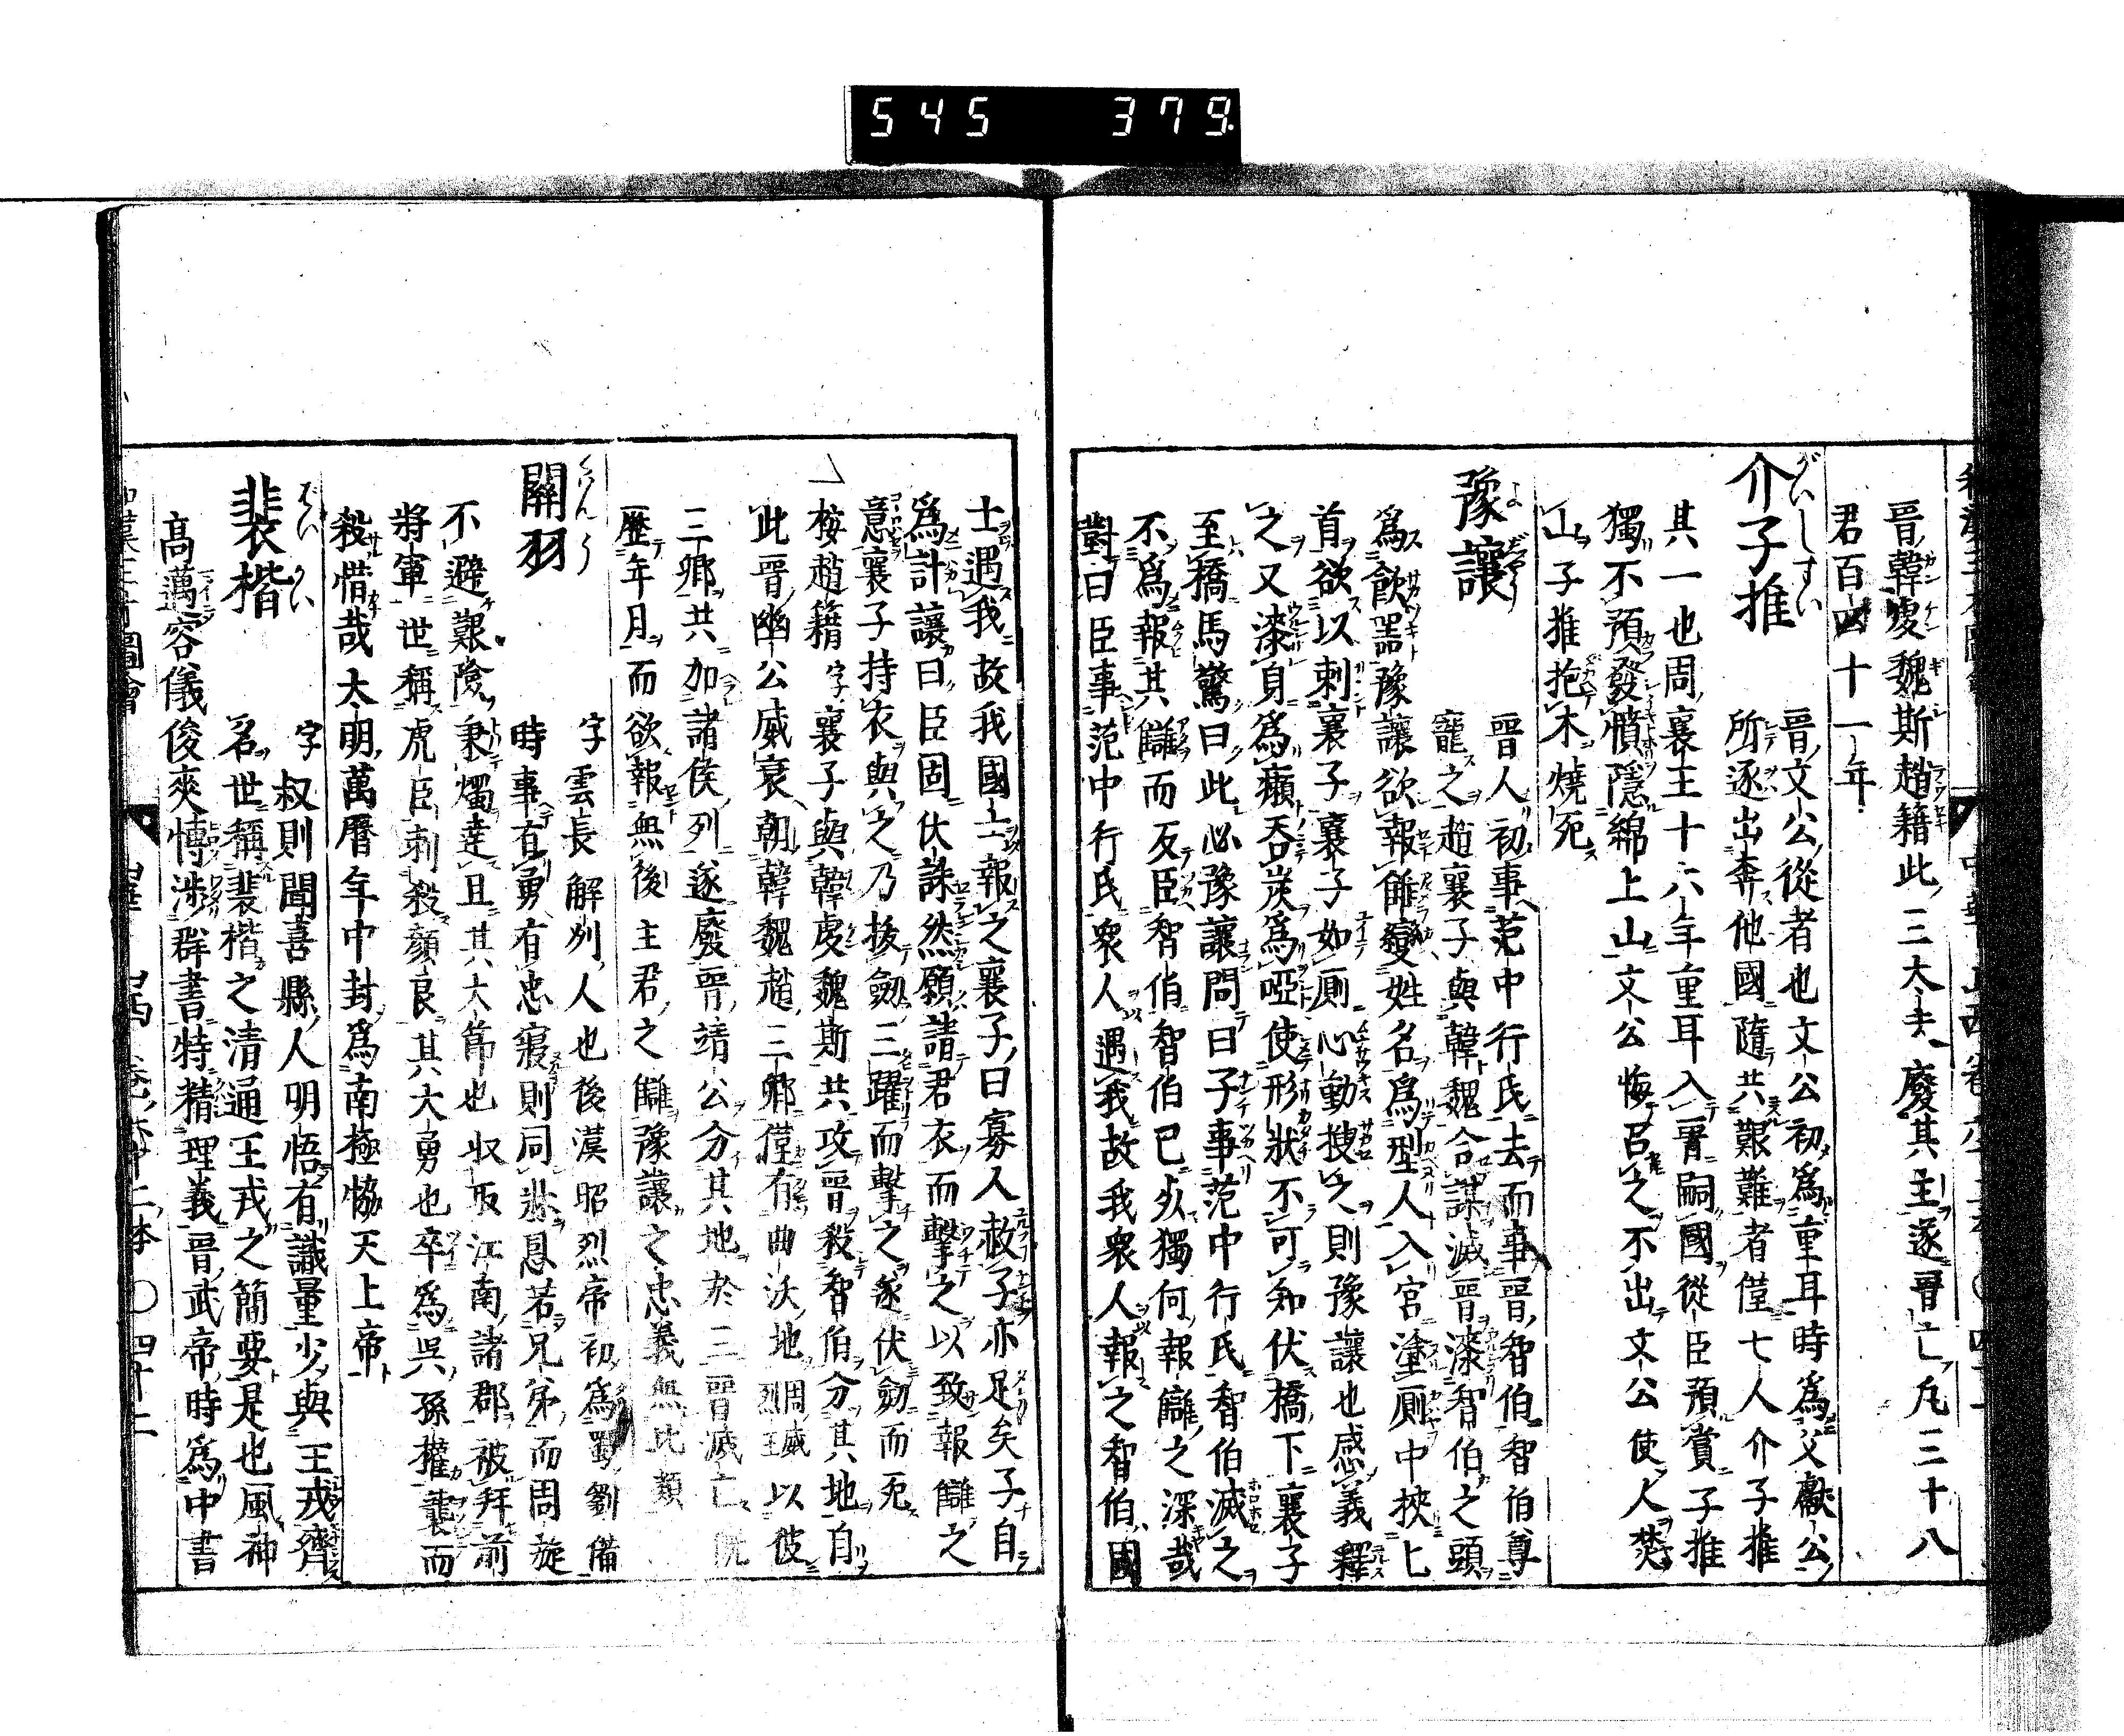 545 379
晉韓虔魏斯趙籍此三大夫廢其主遂晉亡凡三十八
君百四十一年
介子推
晉文公從者也文公初爲重耳時爲父獻公
所逐出奔他國隨共艱難者僅七人介子推
其一也周襄王十六年重耳入晋嗣國從臣預賞子推
獨不預發憤隱綿上山文公悔召之不出文公使人焚
山子推抱木燒死
豫讓
晉人初事范中行氏去而事晉智伯智伯尊
寵之趙襄子與韓魏合謀滅晉漆智伯之頭
爲飮噐豫讓欲報讎變姓名爲型人入宮塗厠中挾匕
首欲以刺襄子襄子如厠心動搜之則豫讓也感義釋
之又漆身爲癩吞炭爲啞使形狀不可知伏橋下襄子
至橋馬驚曰此必豫讓問曰子事范中行氏智伯滅之
不爲報其讎而反臣智伯智伯已死獨何報讎之深哉
對曰臣事范中行氏衆人遇我故我衆人報之智伯國
士遇我故我國士報之襄子曰寡人赦子亦足矣子自
爲計讓曰臣固伏誅然願請君衣而擊之以致報讎之
意襄子持衣與之乃拔劔三躍而擊之遂伏劔而死
按趙籍字襄子與韓虔魏斯共攻晉殺智伯分其地自
此晉幽公威衰朝韓魏趙三卿僅有曲沃地周威烈王以彼
三卿共加諸侯列遂廢晉靖公分其地於三晉滅亡既
歷年月而欲報無後主君之讎豫讓之忠義無比類
關羽
字雲長解州人也後漢昭烈帝初爲蜀劉備
時事有勇有忠寢則同恩若兄弟而周旋
不避艱險秉燭達旦其大節也収取江南諸郡被拜前
將軍世稱虎臣刺殺顏良其大勇也卒爲吳孫權襲而
殺惜哉大明萬曆年中封爲南極恊天上帝
裴楷
字叔則聞喜縣人明悟有識量少與王戎齊
名世稱裴楷之清通王戎之簡要是也風神
高邁容儀俊爽博涉群書特精理義晉武帝時爲中書